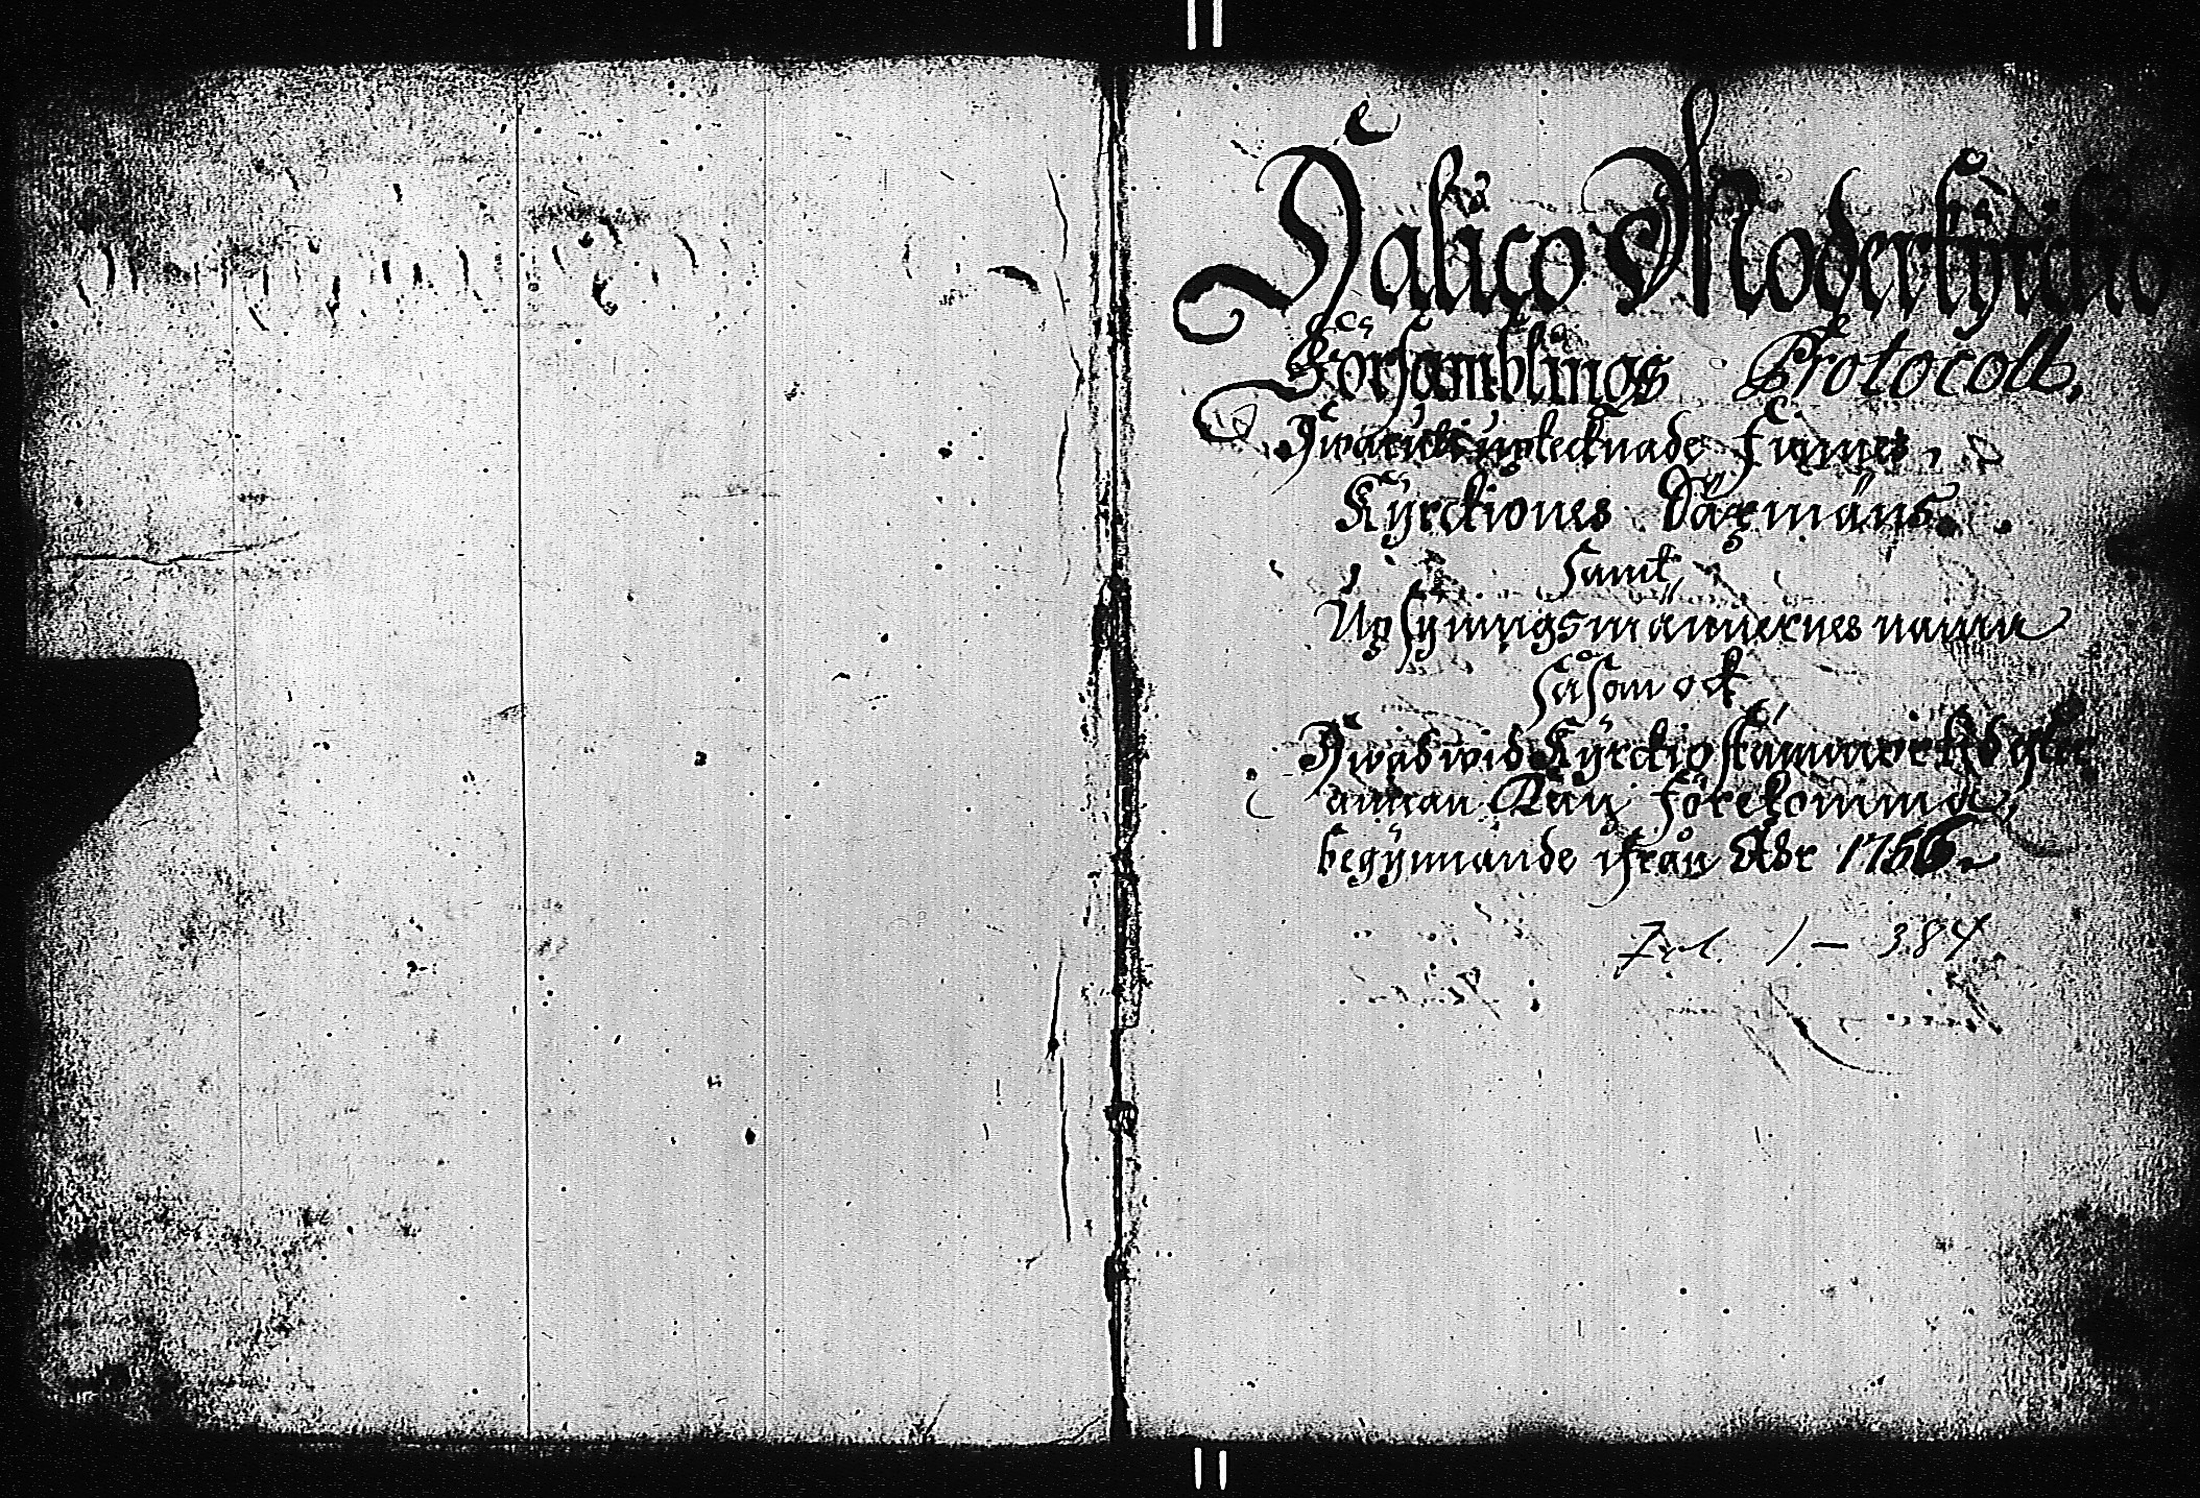 Halico Moderkyrckio
Församblings Protocoll,
Hwaruti uptecknade finnes,
Kyrckiones Säxmäns
samt
Upsyningsmännernes namn
såsom ock
Hwad wid Kyrckiostämmor
annan förekomma,
begynnande ifrån Åhr 1756.
Fol. 1 — 384